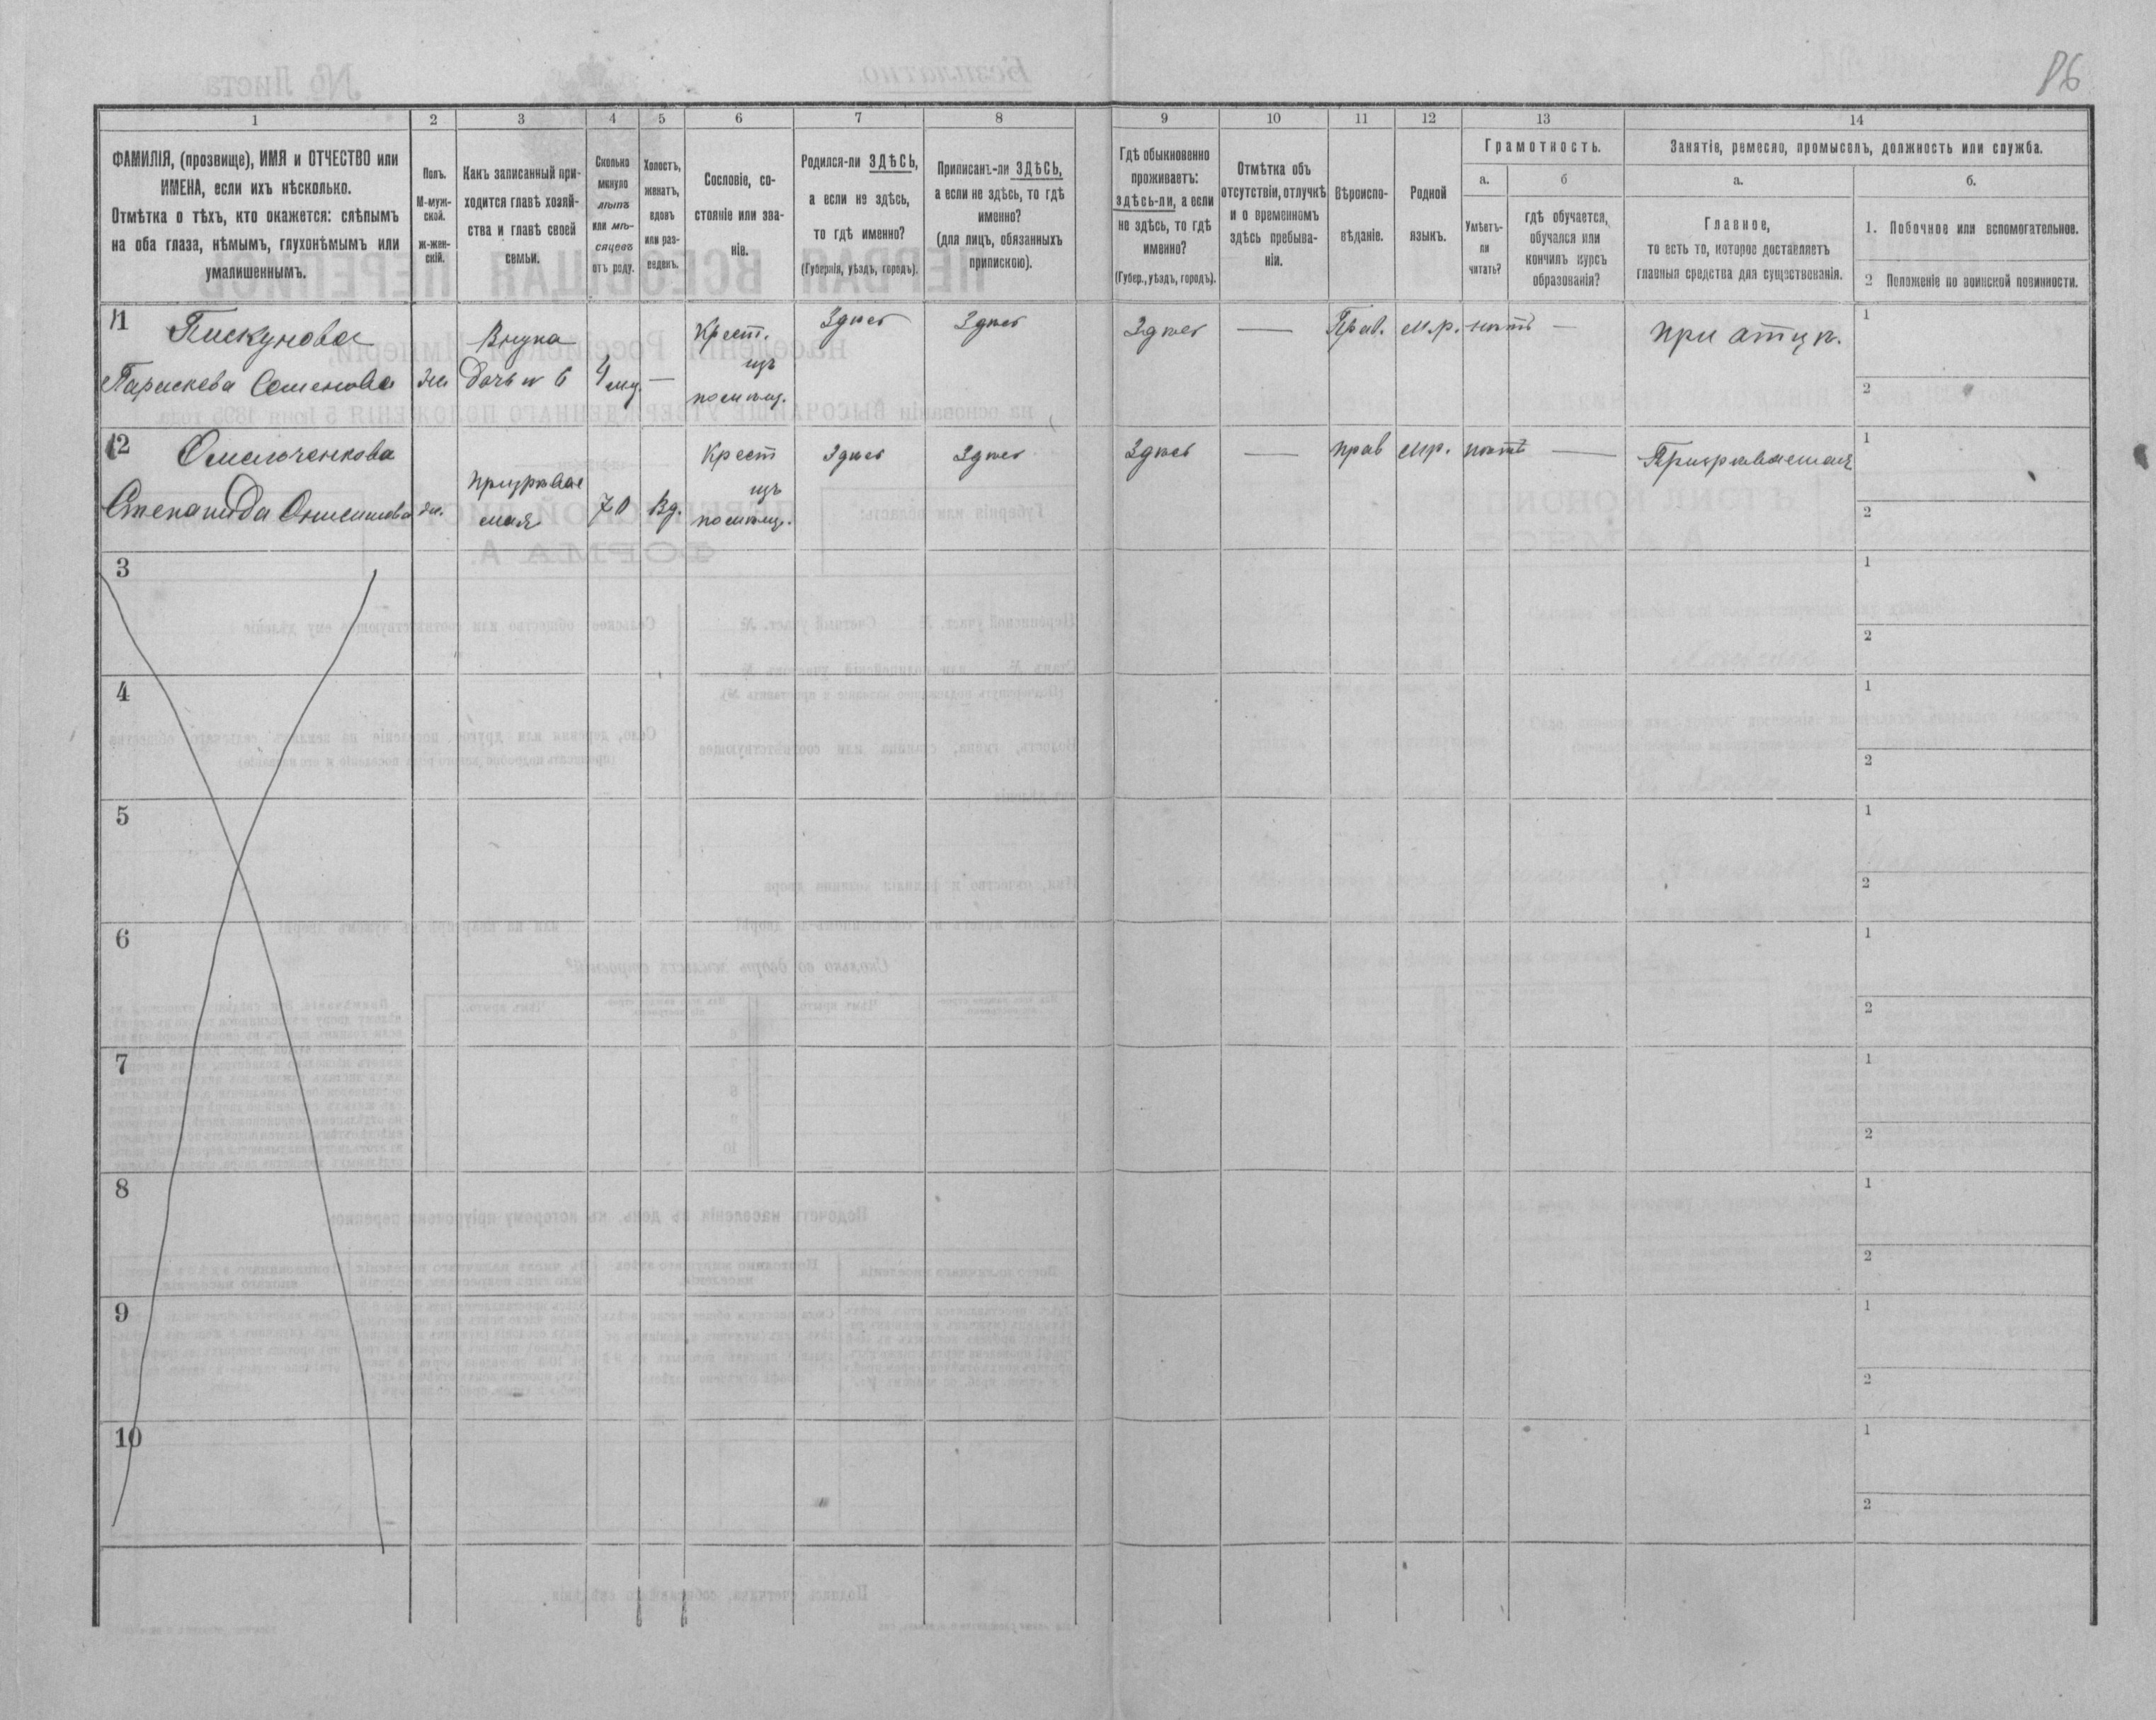 86
1 2 3 4 5 6 7 8 9 10 11 12 13 14
ФАМИЛІЯ, (прозвище), ИМЯ и ОТЧЕСТВО или
ИМЕНА, если ихъ нѣсколько.
Отмѣтка о тѣхъ, кто окажется: слѣпымъ
на оба глаза, нѣмымъ, глухонѣмымъ или
умалишеннымъ.
Полъ.
М-муж-
ской.
ж-жен-
скій.
Какъ записанный при-
ходится главѣ хозяй-
ства и главѣ своей
семьи.
Сколько
минуло
лѣтъ
или мѣ-
сяцевъ
отъ роду.
Холостъ,
женатъ,
вдовъ
или раз-
веденъ.
Сословіе, со-
стояніе или зва-
ніе.
Родился-ли ЗДѢСЬ,
а если не здѣсь,
то гдѣ именно?
(Губернія, уѣздъ, городъ).
Приписанъ-ли ЗДѢСЬ,
а если не здѣсь, то гдѣ
именно?
(для лицъ, обязанныхъ
припискою).
Гдѣ обыкновенно
проживаетъ:
здѣсь-ли, а если
не здѣсь, то гдѣ
именно?
(Губер., уѣздъ, городъ).
Отмѣтка объ
отсутствіи, отлучкѣ
и о временномъ
здѣсь пребыва-
ніи.
Вѣроиспо-
вѣданіе.
Родной
языкъ.
Грамотность.
а. б
Умѣетъ-
ли
читать?
гдѣ обучается,
обучался или
кончилъ курсъ
образованія?
Занятіе, ремесло, промыселъ, должность или служба.
а. б.
Главное,
то есть то, которое доставляетъ
главныя средства для существованія.
1. Побочное или вспомогательное.
2 Положеніе по воинской повинности.
11 Пискунова Внука Крест. Здѣсь Здѣсь Здѣсь — Прав. м.р. нѣтъ — при отцѣ. 1
Параскева Семенова же. дочь № 6 4 — изъ
помѣщ. 2
12 Омельченкова Крест Здѣсь Здѣсь Здѣсь — прав м.р. нѣтъ — Призрѣваемая 1
Степанида призрѣвае
мая 70 Вд. изъ
помѣщ. 2
3 1
2
4 1
2
5 1
2
6 1
2
7 1
2
8 1
2
9 1
2
10 1
2